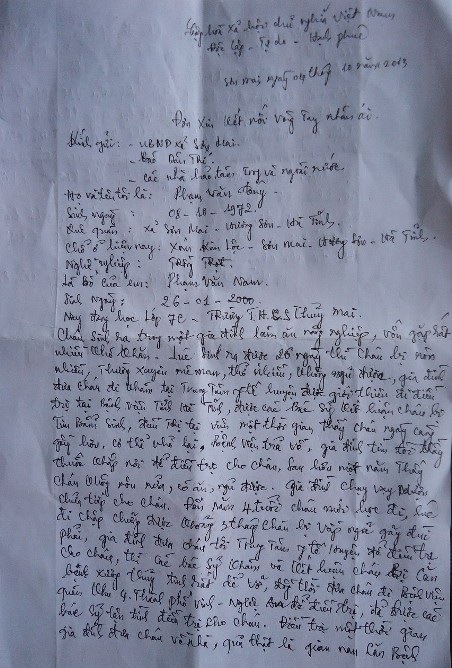 Cộng hòa xã hội chủ nghĩa Việt Nam
Độc lập - Tự do - Hạnh phúc
Sơn Mai ngày 04 tháng 10 năm 2013
Đơn Xin Kết nối vòng Tay nhân ái.
Kính gửi: - UBND xã Sơn Mai.
- Báo Dân Trí.
- Các nhà hảo tâm trong và ngoài nước.
Họ và tên tôi là: Phạm Văn
Sinh ngày : 08-10-1972.
Quê quán : xã Sơn Mai - Hương Sơn - Hà Tĩnh.
Chỗ ở hiện nay: Xóm Kim Lộc - Sơn Mai - Hương Sơn - Hà Tĩnh.
Nghề nghiệp : Trồng Trọt.
Là Bố của em: Phạm Văn Nam.
Sinh Ngày: 26-01-2000.
Nay đang học Lớp 7C - Trường T.H.C.S Thủy Mai.
Cháu sinh ra trong một gia đình làm ăn nông nghiệp, vốn gặp rất
nhiều khó khăn. Lúc sinh ra được 26 ngày thì cháu bị nôn
nhiều, thường xuyên mê man, thở nhiều, không ngủ được, gia đình
đưa cháu đi khám tại Trung Tâm y tế huyện được giới thiệu đi điều
trị tại Bệnh viện Tỉnh Hà Tĩnh, được các Bác Sỹ kết luận cháu bị
Tim Bẩm sinh, điều trị tại viện một thời gian thấy cháu ngày càng
gầy hơn, cơ thể nhỏ lại, Bệnh viện trả về, gia đình tìm tòi thầy
thuốc khắp nơi để điều trị cho cháu, sau hơn một năm thấy
cháu không nôn nữa, có ăn, ngủ được. Gia đình chạy vạy
cho cháu. Đến năm 4 tuổi cháu mới lực đi,
đi chập chững được không 3 tháng cháu bị vấp ngã gãy đùi
phải, gia đình đưa cháu tới Trung Tâm y tế huyện để điều trị
cho cháu, thì các bác sỹ khám và kết luận cháu bị căn
bệnh xương thủy tinh rất dễ vỡ, đồng thời đưa cháu đi Bệnh viện
quân khu 4 Thành phố Vinh - Nghệ An để điều trị, để được các
bác sỹ tận tình điều trị cho cháu. Điều trị một thời gian
gia đình đưa cháu về nhà, quả thật là gian nan căn Bệnh